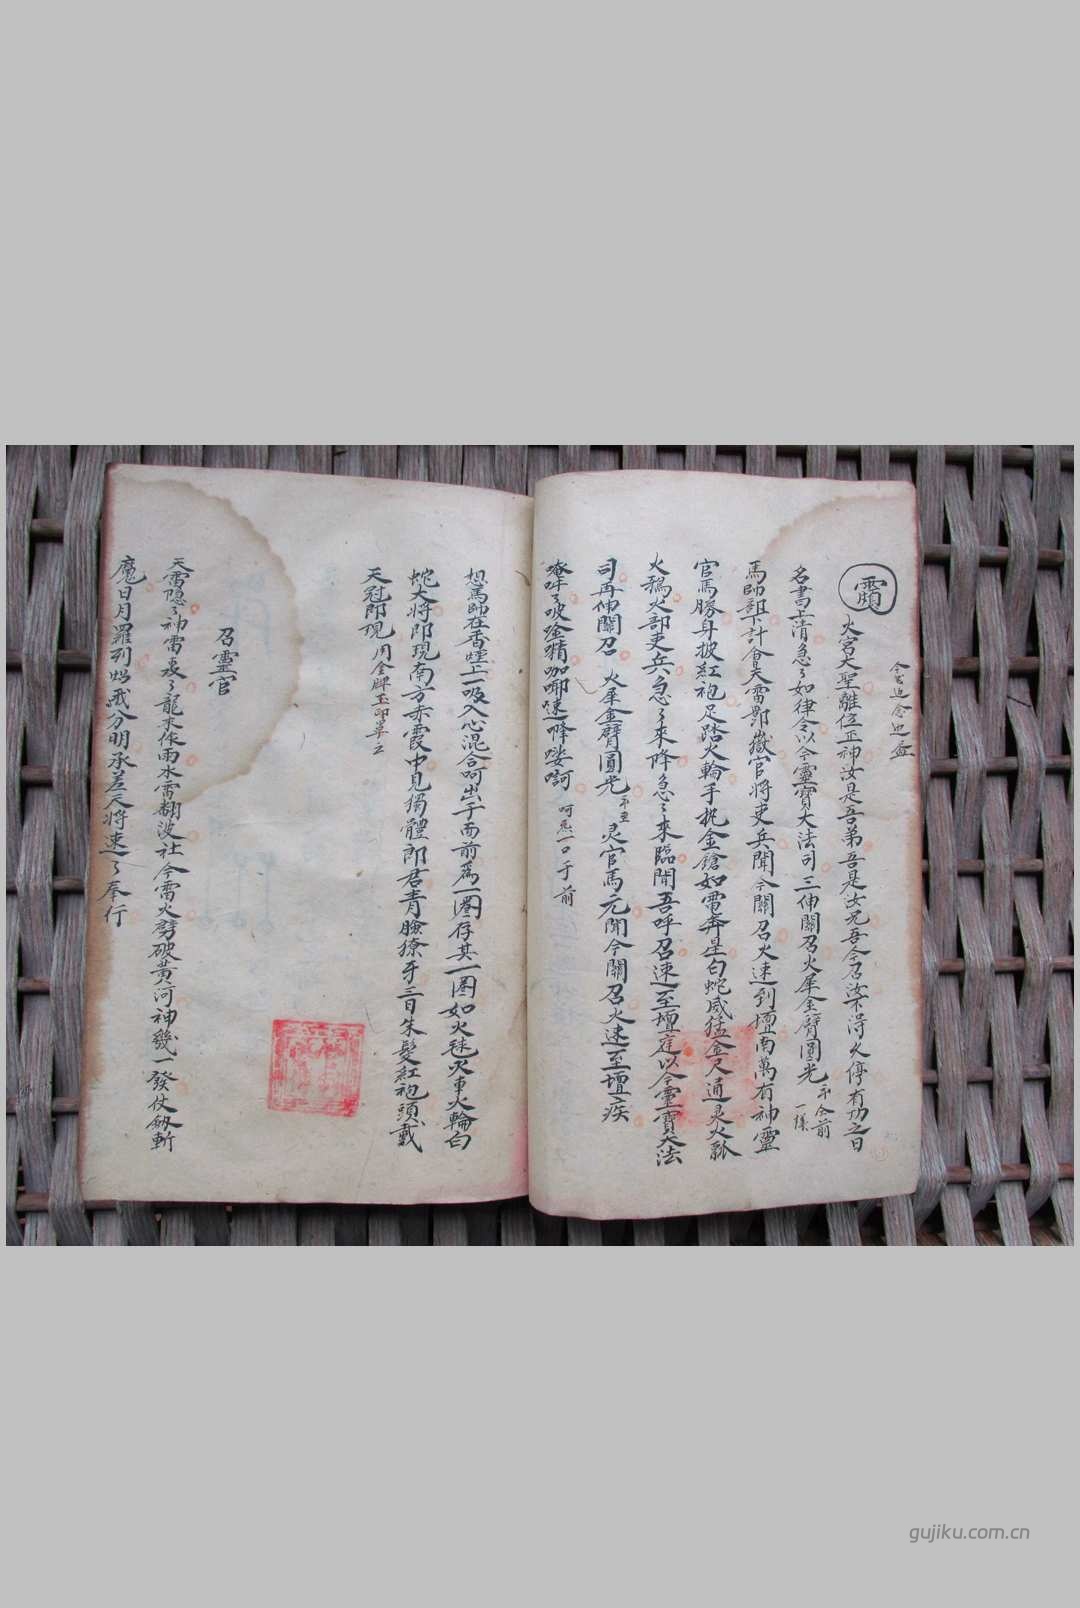 火宮大聖離位正神汝是吾弟吾是汝兄吾今召汝不得久停有功之日
名書上清急々如律令以今靈寶大法司三伸關召火犀金臂圓光
馬帥部下計會天雷酆嶽官將吏兵聞今關召火速到壇南萬有神靈
官馬勝身披紅袍足踏火輪手執金鎗如電奔星白蛇威猛金尺通灵火瓢
火鵶火部吏兵急々來降急々來臨聞吾呼召速至壇庭以今靈寶大法
司再伸關召 火犀金臂圓光 灵官馬元聞今關召火速至壇疾
呵炁一口于前
想馬帥在香煙上一吸入心混合呵出于面前爲一圈存其一圈如火毬火車火輪白
蛇大將即現南方赤霞中見獨體郎君青臉獠牙三目朱髮紅袍頭戴
天冠即現 用金牌玉印
召靈官
天雷隱々神雷轰々龍來作雨水雷翻波社令雷火劈破黃河神幾一發仗劒斬
魔日月羅列照戒分明承差天將速々奉行
gujiku.com.cn